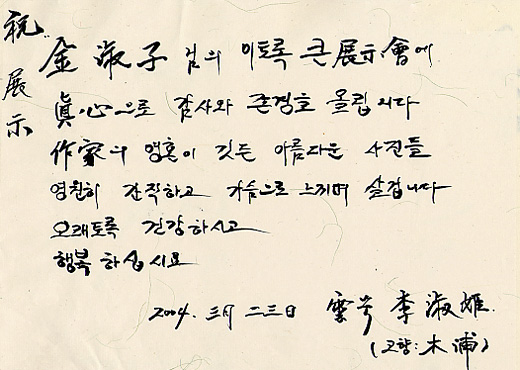 祝 展示
金淑子님의 이토록 큰 展示會에
眞心으로 감사와 존경호 올립니다
作家의 영혼이 깃든 아름다운 사진들
영원히 간직하고 가슴으로 느끼며 살겁니다
오래토록 건강하시고
행복 하십시요
2004. 三月 二三日 李淑雄.
(고향:木浦)